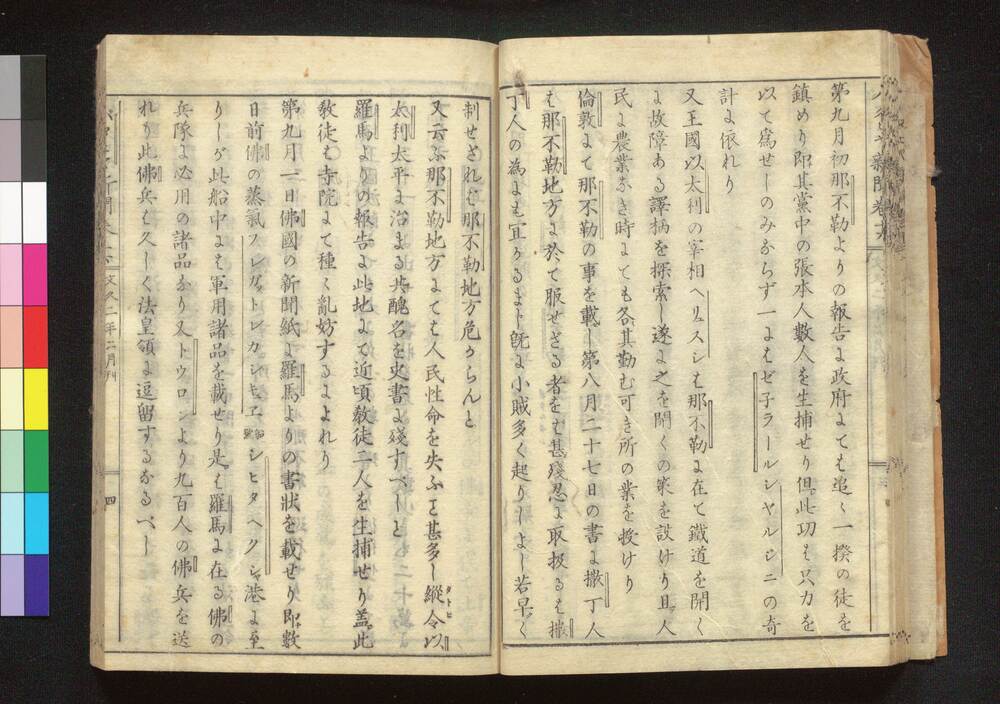 第九月初那不勒よりの報告よ政府よても追〻一揆の徒を
鎮めり即其黨中の張本人數人を生捕せり但此功も只力を
以て爲せしのみならず一よはゼ子ラールシヤルジニの奇
計よ依れり
又王國以太利の宰相へリュスシも那不勒よ在て鐵道を開く
よ故障ある譯柄を探索し遂よ之を開くの策を設けり且人
民よ農業なき時よても各其勤む可き所の業を授けり
倫敦よて那不勒の事を載し第八月二十七日の書よ撒丁人
は那不勒地方よ於て服せざる者をも甚殘忍よ取扱るは撒
丁人の為よも宜かるまじ既よ小賊多く起りしよし若早く
制せざれは那不勒地方危からんと
又云ふ那不勒地方よても人民性命を失ふこと甚多し縱令以
タトヒ
太利太平よ治まる共醜名を史書よ殘すべしと
羅馬よりの報告よ此地よて近頃敎徒二人を生捕せり蓋此
敎徒も寺院よて種〻亂妨するよよれり
第九月一日佛國の新聞紙よ羅馬よりの書状を載せり即數
日前佛の蒸氣フレガットレカシキエ船号シヒタヘクシャ港よ至
りしが此船中よは軍用諸品を載せり是は羅馬よ在る佛の
兵隊よ必用の諸品なり又トウロンより九百人の佛兵を送
れり此佛兵も久しく法皇領よ逗留するなるべし
文久二年二月刊
四